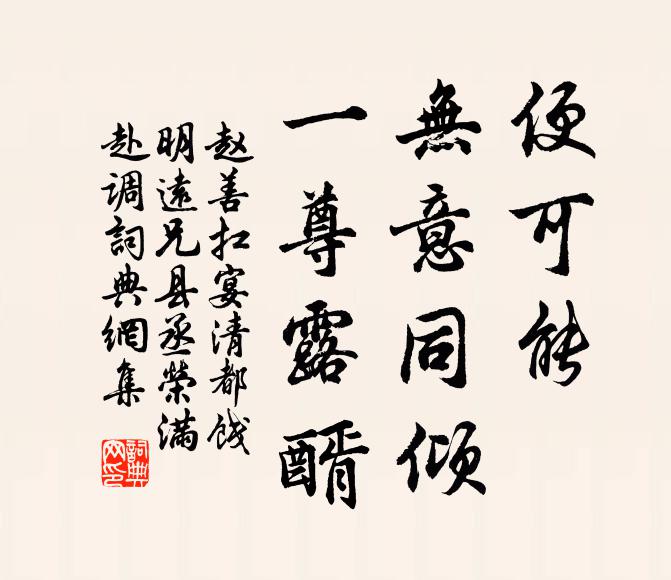 便可能
無意同傾
一尊露醑
赵善扛宴清都饯
明遠兄县丞榮满
赴调詞典網集
詞典网印